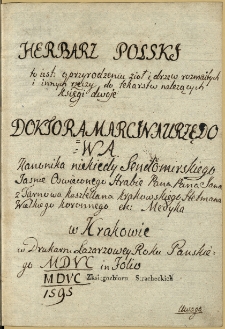 HERBARZ POLSKI
to iest o przyrodzeniu zioł i drzew rozmaitych
i innych rzeczy do lekarstw należących
księgi dwoje
DOKTORA MARCINA URZĘDO
WA
Kanonika niekiedy Sendomirskiego
Jaśnie Oświeconego Hrabie Pana Pana Jana
z Tarnowa Kasztellana Krakowskiego Hetmana
Walkiego koronnego etc: Medyka
w Krakowie
w Drukarni Łazarzowey Roku Pańskie
go MDVC in Folio
MDVC
1595